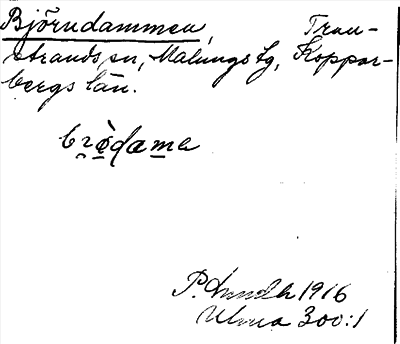 Björndammen, Tran-
strands sn, Malungs tg, Koppar-
bergs län.
bròdamen
P. Lundh 1916
Ulma 300:1